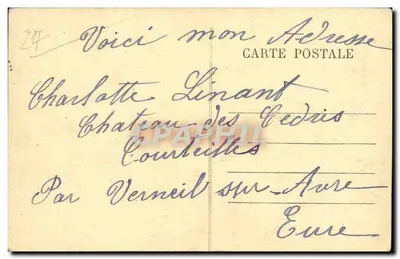 27
Voici mon Adresse
CARTE POSTALE
Charlotte Linant
Chateau des Cedres
Courteilles
Par Verneil sur Avre
Eure